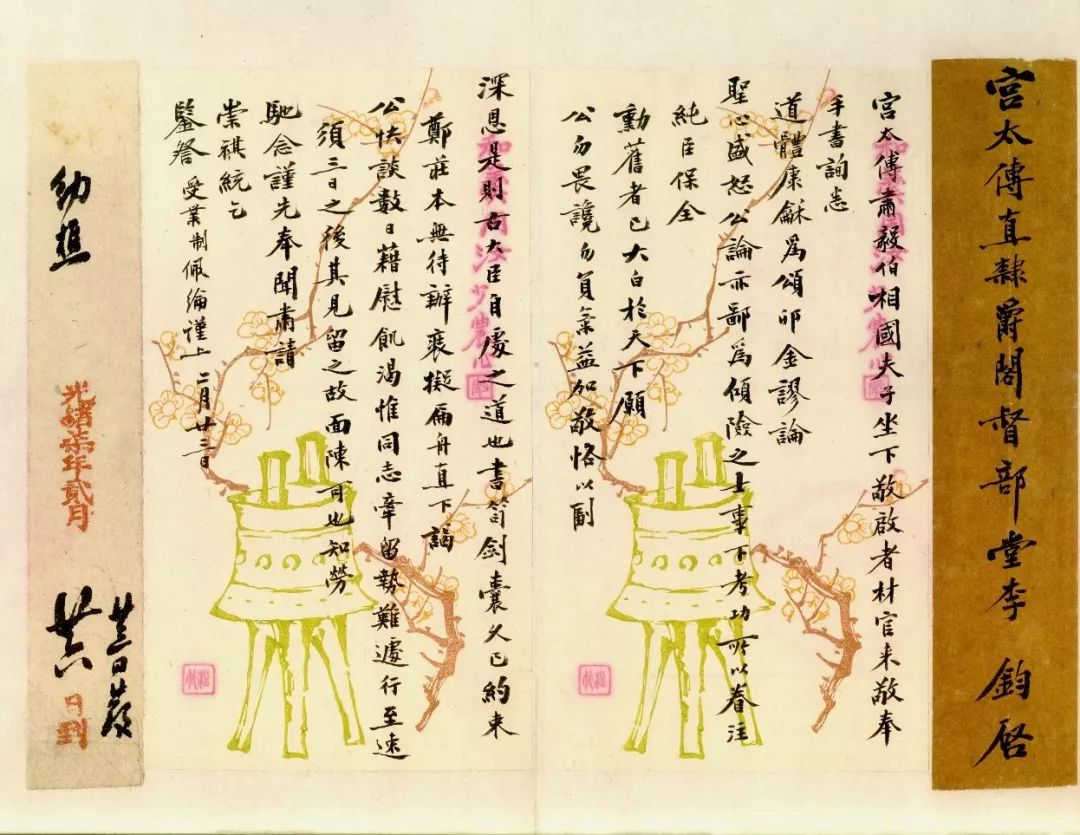 宮太傅直隸爵閣督部堂李 鈞啓
宮太傅肅毅伯相國夫子坐下敬啟者材官来敬奉
手書詢悉
道體康龢為頌卯金謬論
聖心盛怒公論亦鄙為傾險之士事下考功所以眷注
純臣保全
勳舊者已大白於天下願
公勿畏讒勿負氣益加敬恪以副
深恩是則古大臣自處之道也書笥劍囊久已約束
鄭莊本無待辦裝擬扁舟直下謁
公快談數日藉慰飢渴惟同志牽留勢難遽行至速
須三日之後其見留之故面陳可也知勞
馳念謹先奉聞肅請
崇祺統乞
鑒詧 受業制佩綸謹上 二月廿三日
幼樵
光緒柒年貳月
廿三日發
廿六日到